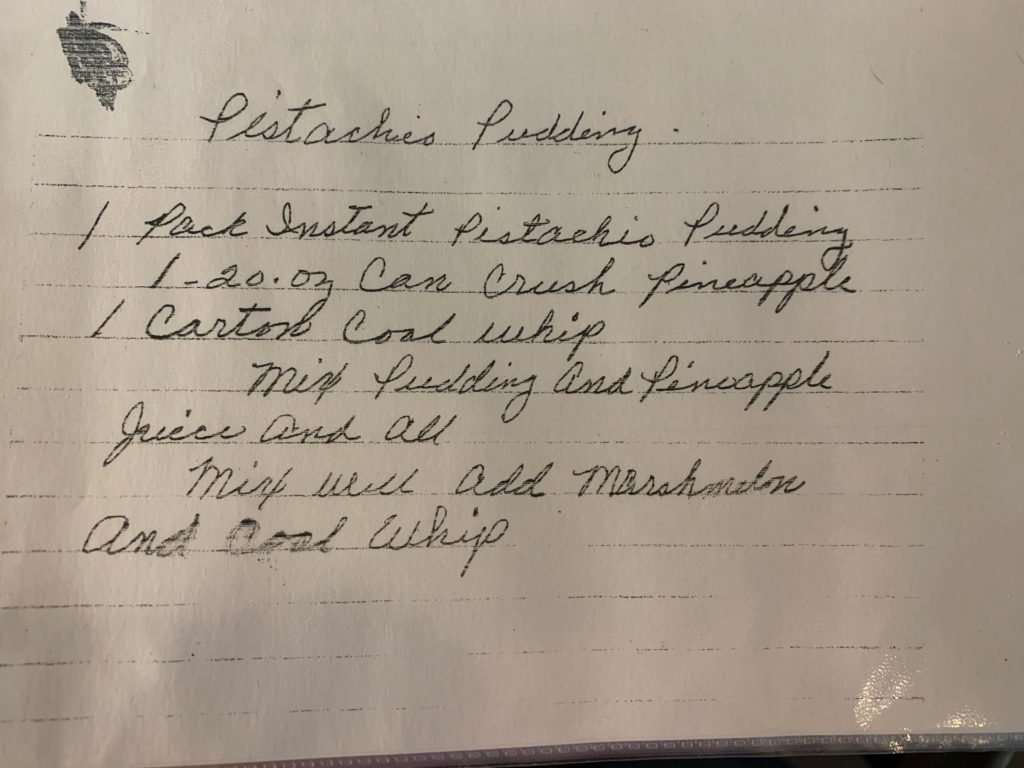 Pistachio Pudding.
1 Pack Instant Pistachio Pudding
1-20.oz Can Crush Pineapple
1 Carton Cool whip
Mix Pudding And Pineapple
Juice And All
Mix well add Marshmelon
And Cool Whip